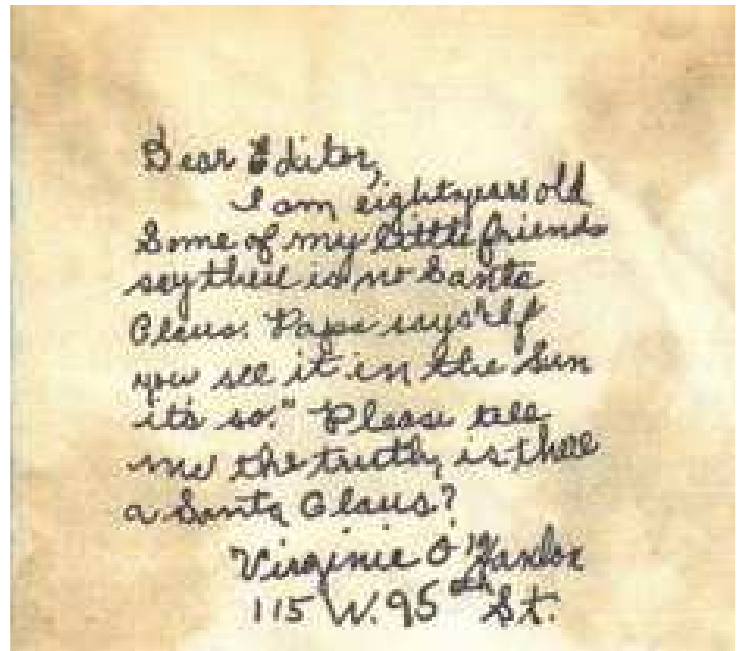 Dear Editor,
I am eight years old
Some of my little friends
say there is no Santa
Claus. Papa says "If
you see it in the Sun
it's so." Please tell
me the truth, is there
a Santa Claus?
Virginia O'Hanlon
115 W. 95th St.